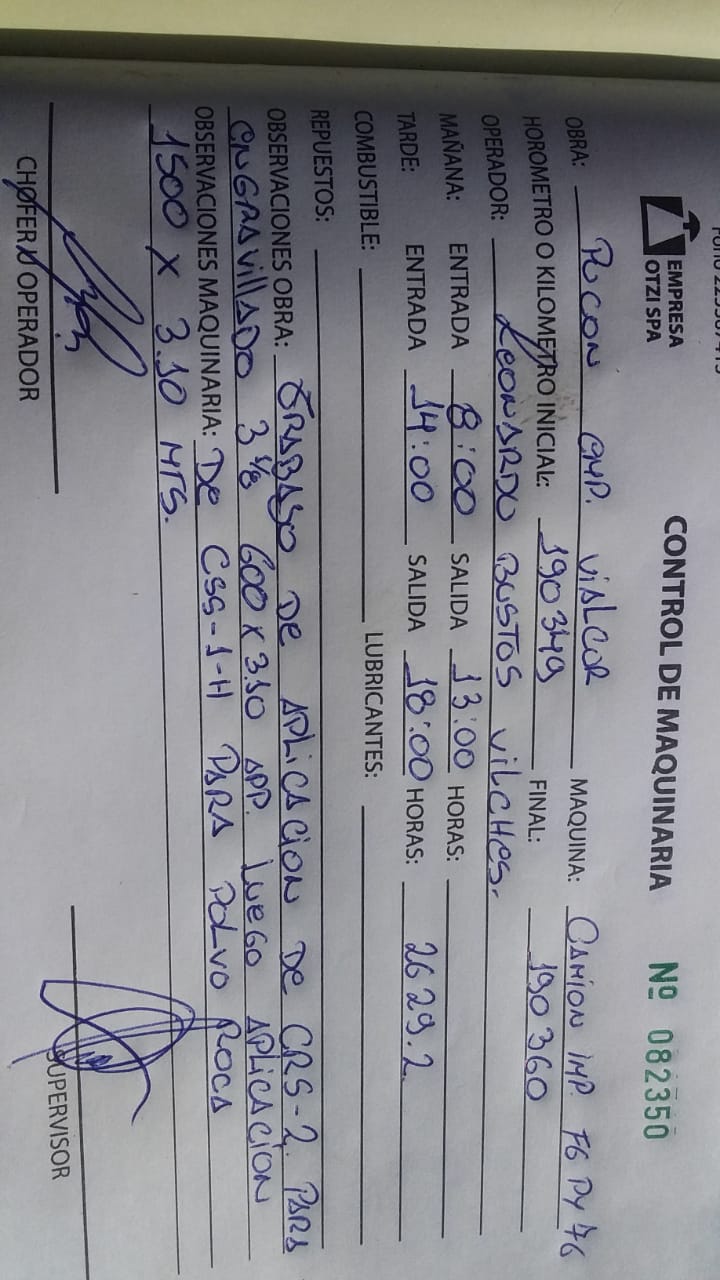 EMPRESA
OTZI SPA
CONTROL DE MAQUINARIA Nº 082350
OBRA: Pucon EMP. VIALCOR MAQUINA: CAMION IMP.
HOROMETRO O KILOMETRO INICIAL: 190349 FINAL: 190360
OPERADOR: LEONARDO BUSTOS VILCHES.
MAÑANA: ENTRADA 8:00 SALIDA 13:00 HORAS:
TARDE: ENTRADA 14:00 SALIDA 18:00 HORAS: 2629.2
COMBUSTIBLE: LUBRICANTES:
REPUESTOS:
OBSERVACIONES OBRA: TRABAJO DE APLICACION DE CRS-2 PARA
ENGRAVILLADO 3/8 600 x 3.10 APP. LUEGO APLICACION
OBSERVACIONES MAQUINARIA: DE CSS-1-H PARA POLVO ROCA
1500 x 3.10 MTS.
CHOFER / OPERADOR
SUPERVISOR